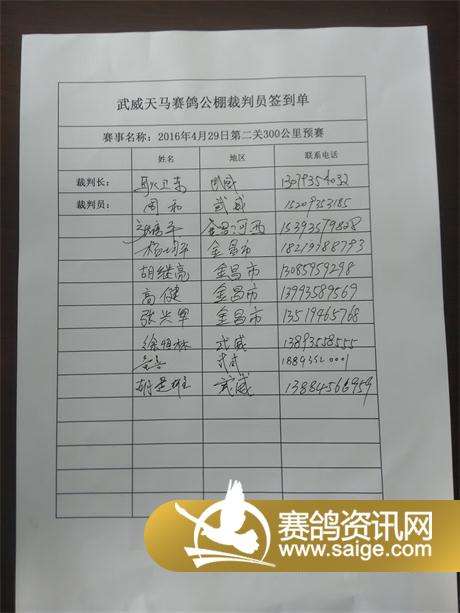 武威天马赛鸽公棚裁判员签到单
赛事名称：2016年4月29日第二关300公里预赛
姓名 地区 联系电话
裁判长： 卫东 武威
裁判员： 周和 武威 15209353185
金昌河西 15393579828
金昌市
胡继亮 金昌市 13085959298
高健 金昌市 13993589569
张兴军 金昌市 13519465768
徐恒林 武威 13893558555
武威
武威 13884566959
赛鸽资讯网
www.saige.com